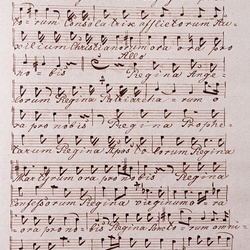 rum Consolatrix afflictorum Au=
xilium Christianorum ora ora pro
Allo
nobis Regina Ange=
lorum Regina Patriarcha=rum o
ra pro nobis Regina Prophe=
tarum Regina Apostolorum Regina
Martyrum ora pro nobis Regina
Confessorum Regina virginum o ra
ora pro nobis Regina Sanctorum omni